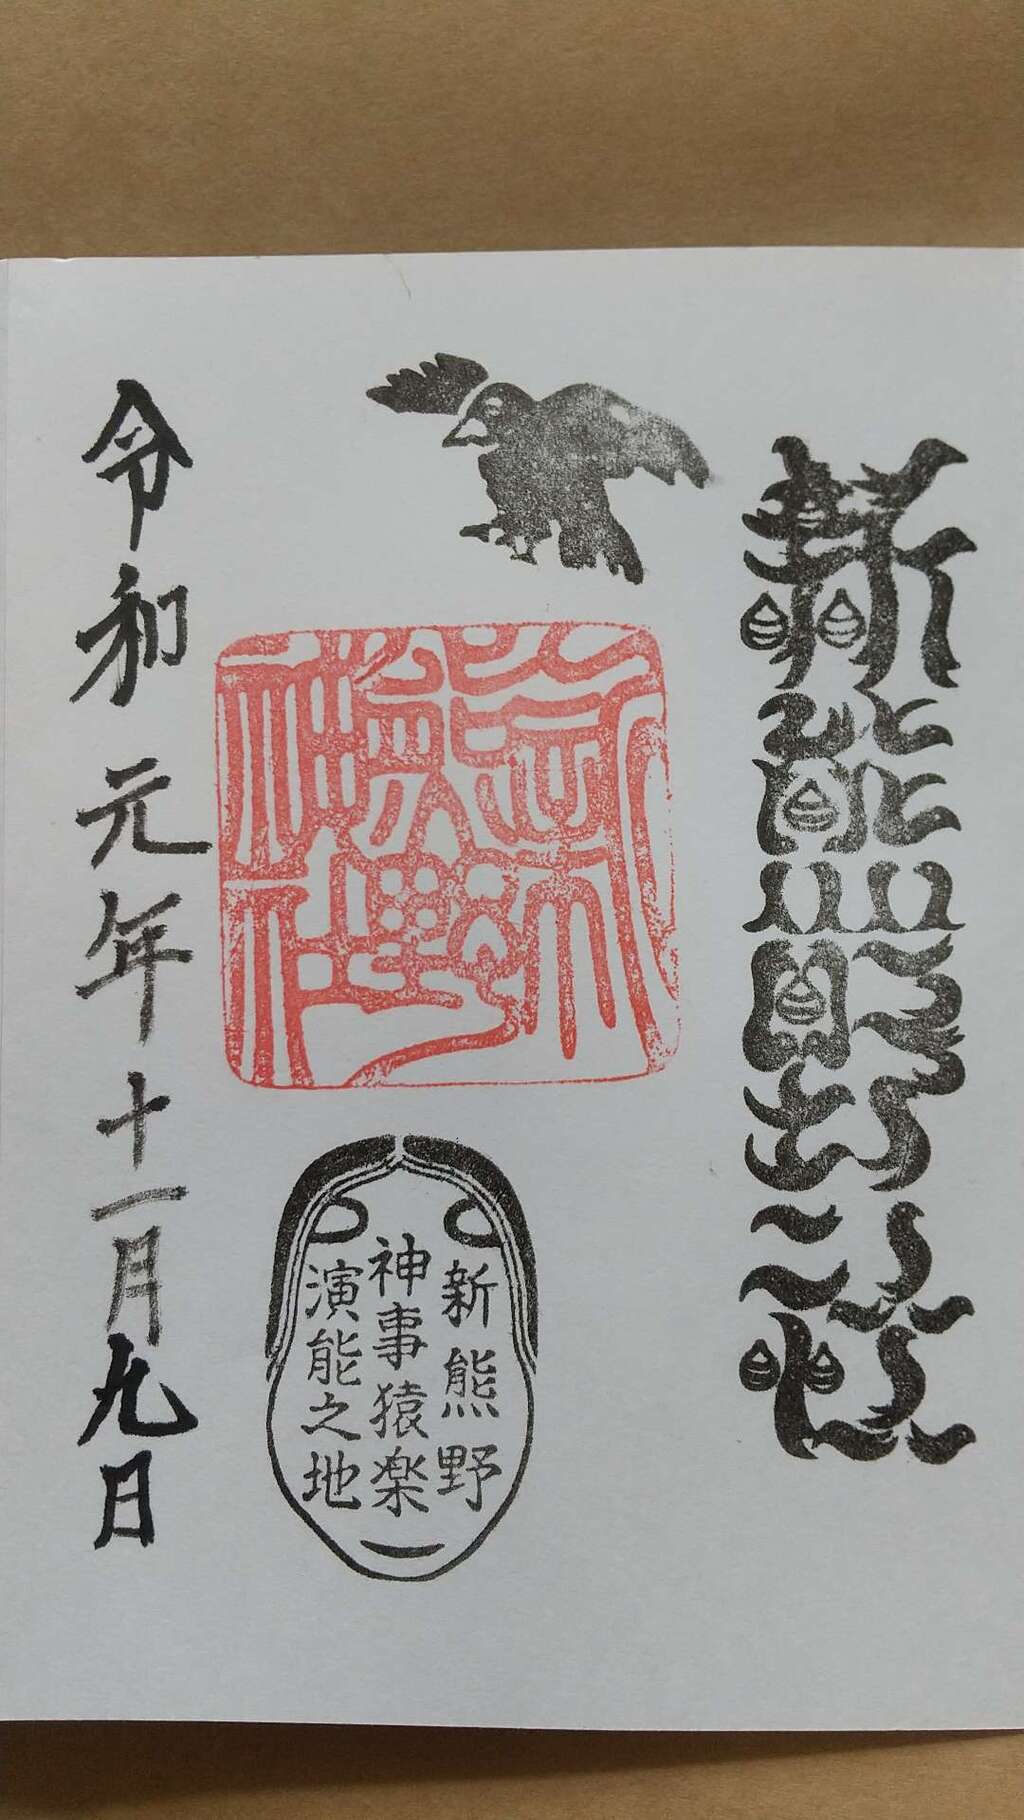 新熊野
新熊野神社
新熊野
神事猿楽
演能之地
令和元年十一月九日